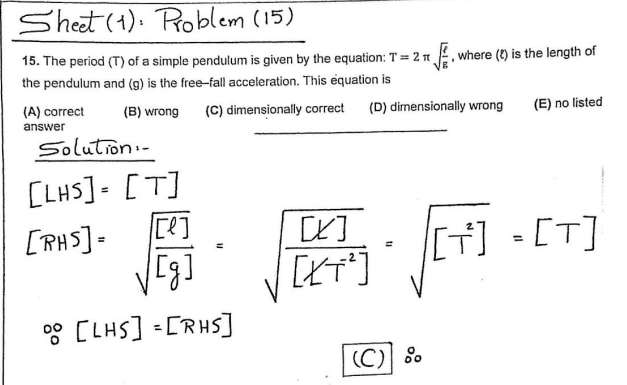 Sheet (1): Problem (15)
15. The period (T) of a simple pendulum is given by the equation: T = 2 π √(ℓ/g), where (ℓ) is the length of
the pendulum and (g) is the free–fall acceleration. This equation is
(A) correct (B) wrong (C) dimensionally correct (D) dimensionally wrong (E) no listed
answer
Solution:-
[LHS] = [T]
[RHS] = √([ℓ]/[g]) = √([L]/[LT⁻²]) = √[T²] = [T]
∴ [LHS] = [RHS]
(C)